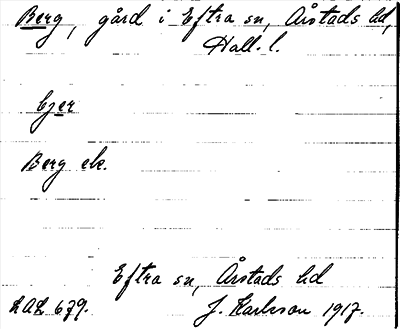 Berg, gård i Eftra sn, Årstads hd,
Hall. l.
bjer
Berg ek.
Eftra sn, Årstads hd
LAL 679.
J. Karlsson 1917.